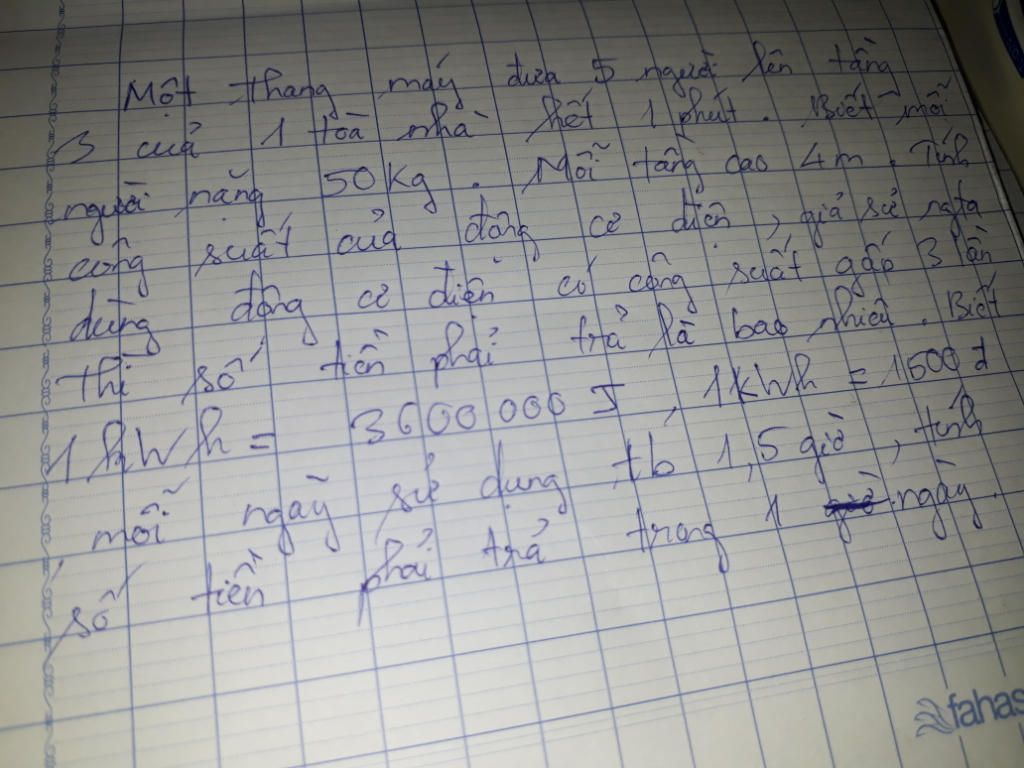 Một thang máy đưa 5 người lên tầng
3 của 1 tòa nhà hết 1 phút. Biết mỗi
người nặng 50Kg. Mỗi tầng cao 4m. Tính
công suất của động cơ điện, giả sử ngta
dùng động cơ điện có công suất gấp 3 lần
thì số tiền phải trả là bao nhiêu. Biết
1kWh = 3600 000 J, 1kWh = 1500 đ
mỗi ngày sử dụng tb 1,5 giờ, tính
số tiền phải trả trong 1 ngày.
fahas